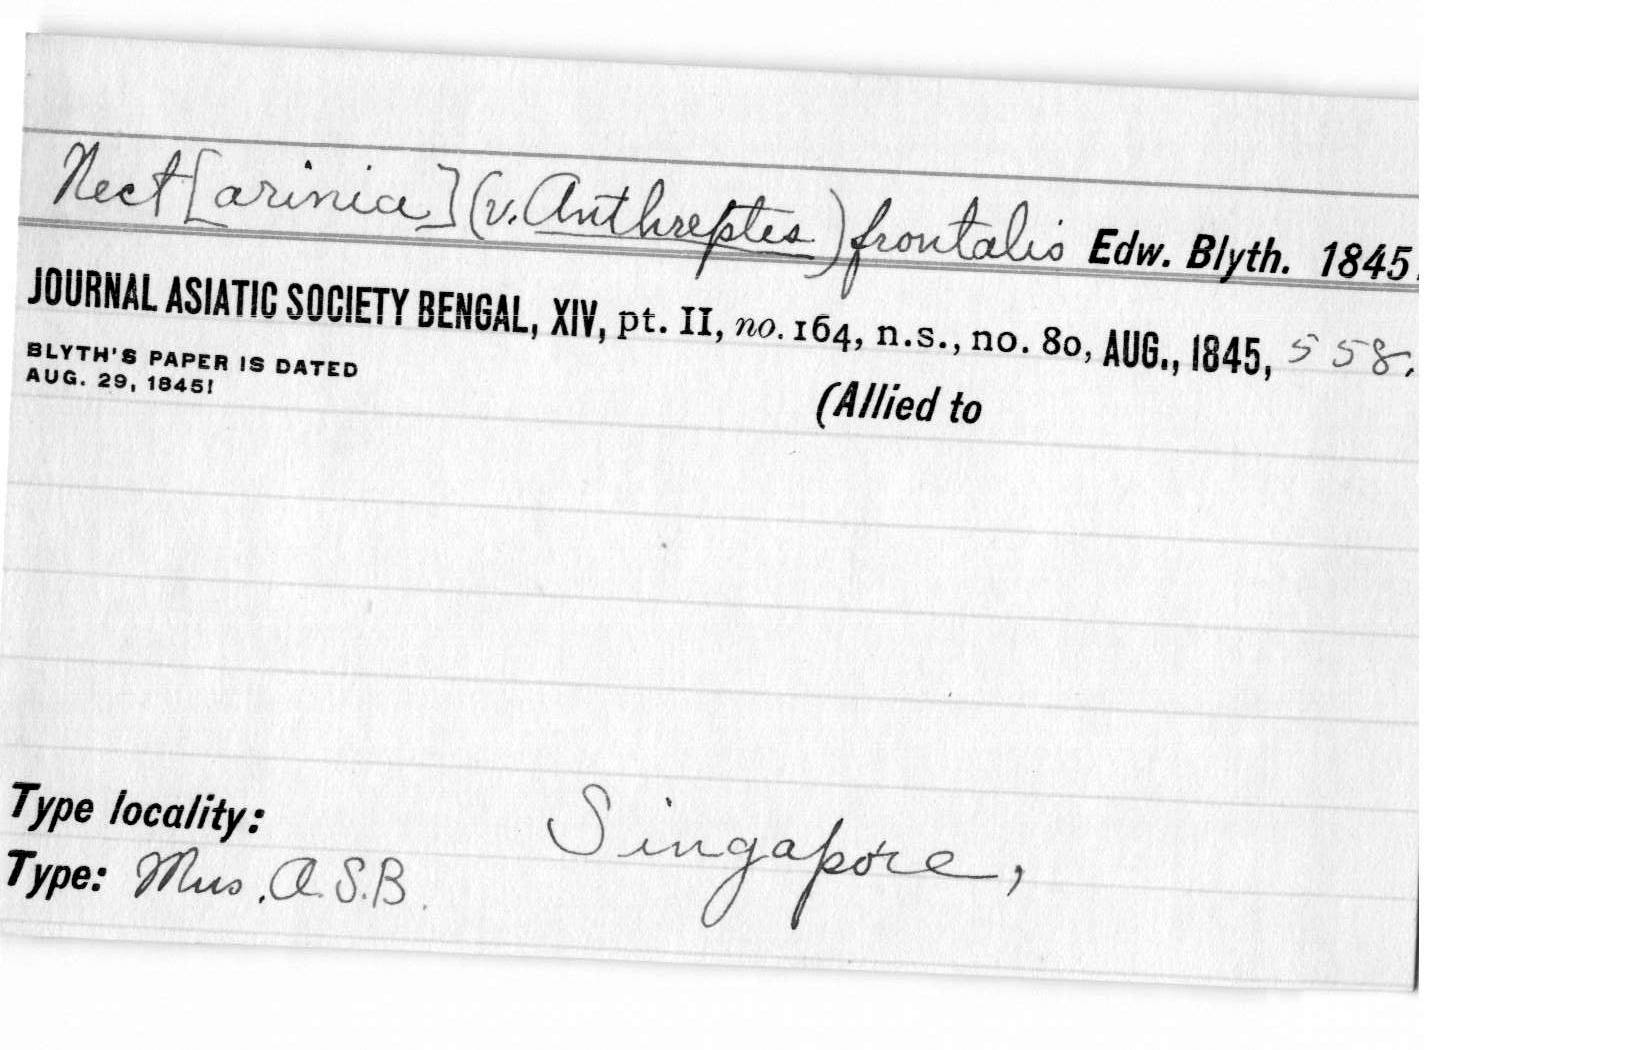 Nect[arinia](v. Anthreptes) frontalis Edw. Blyth. 1845.
JOURNAL ASIATIC SOCIETY BENGAL, XIV, pt. II, no. 164, n.s., no. 80, AUG., 1845, 558.
BLYTH'S PAPER IS DATED
AUG. 29, 1845!
(Allied to
Type locality: Singapore,
Type: Mus. A.S.B.